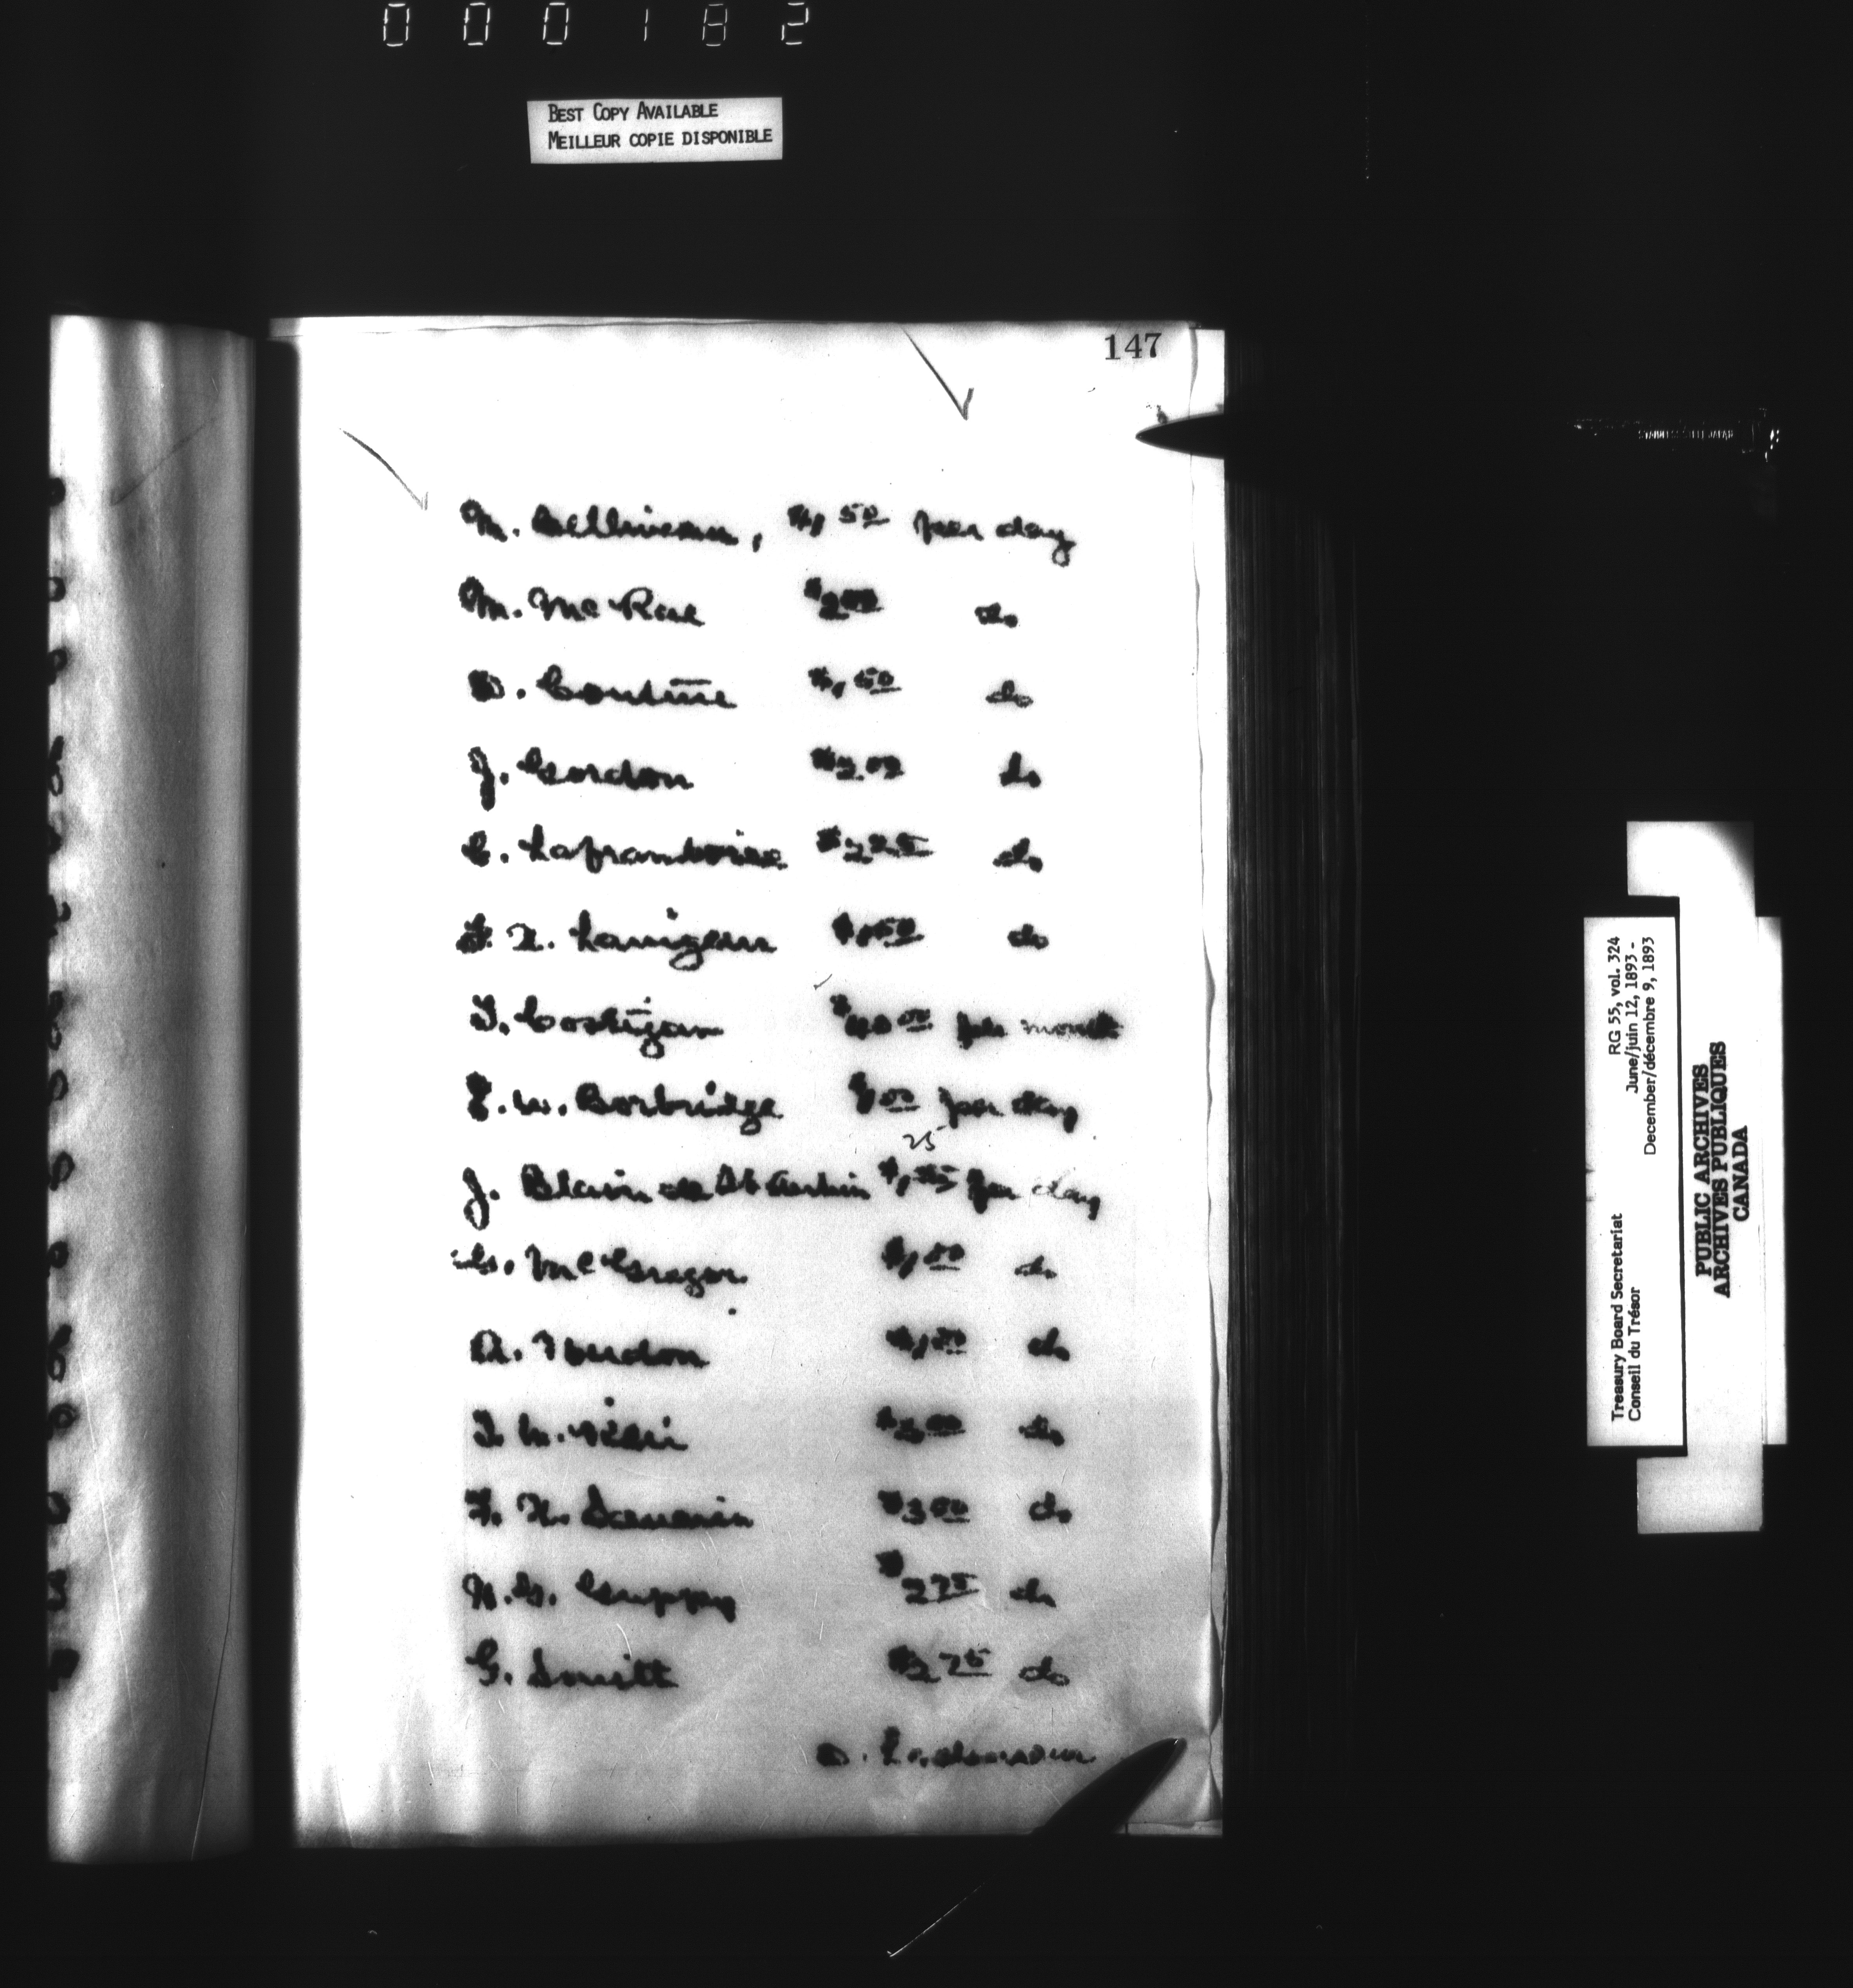 000182
BEST COPY AVAILABLE
MEILLEUR COPIE DISPONIBLE
147
M. Belliveau, $1,50 per day
M. McRae $2 00 do
D. $1,50 do
J. Gordon $2.00 do
C. Laframboise $2 25 do
F. X. Lanigan $1,50 do
T. Costigan $40 00 per month
E. W. Borbridge $1 00 per day
25
J. Blain de St Aubin $1, per day
G. McGregor $1,50 do
A. $1,50 do
$2 00 do
F. X. $3 00 do
H. G. Guppy $2 75 do
G. Smith $2 75 do
STAINLESS STEEL JAPAN
Treasury Board Secretariat RG 55, vol. 324
Conseil du Trésor June/juin 12, 1893 -
December/décembre 9, 1893
PUBLIC ARCHIVES
ARCHIVES PUBLIQUES
CANADA